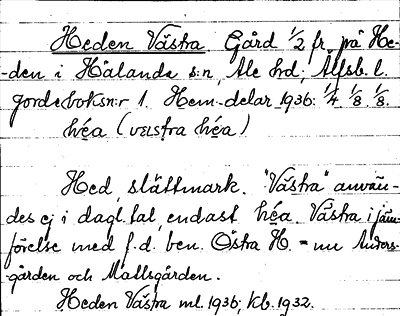 Heden Västra. Gård 1/2 fr. på He-
-den i Hålanda s:n, Ale hd, Älfsb. l.
Jordeboksn:r 1. Hem.-delar 1936: 1/4 1/8 1/8.
héa (veistra héa)
Hed, slättmark. "Västra" använ-
des ej i dagl. tal, endast héa. Västra i jäm-
förelse med f.d. ben. Östra H. = nu Anders-
gården och Mallsgården.
Heden Västra ml. 1936, Kb. 1932.